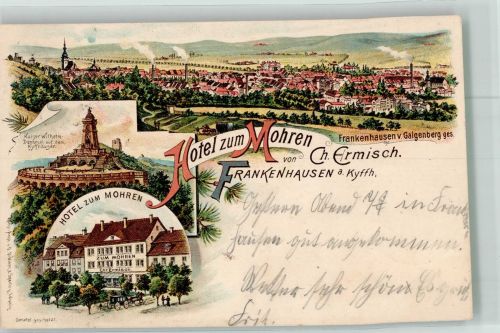 Frankenhausen v. Galgenberg ges.
Kaiser Wilhelm
Denkmal auf dem
Kyffhäuser.
Hotel zum Mohren
von Ch. Ermisch.
Frankenhausen a. Kyffh.
HOTEL ZUM MOHREN
HOTEL
ZUM MOHREN
CH. ERMISCH
Gestern Abend in
hausen gut angekommen.
Wetter sehr schön
Gesetzl. geschützt.